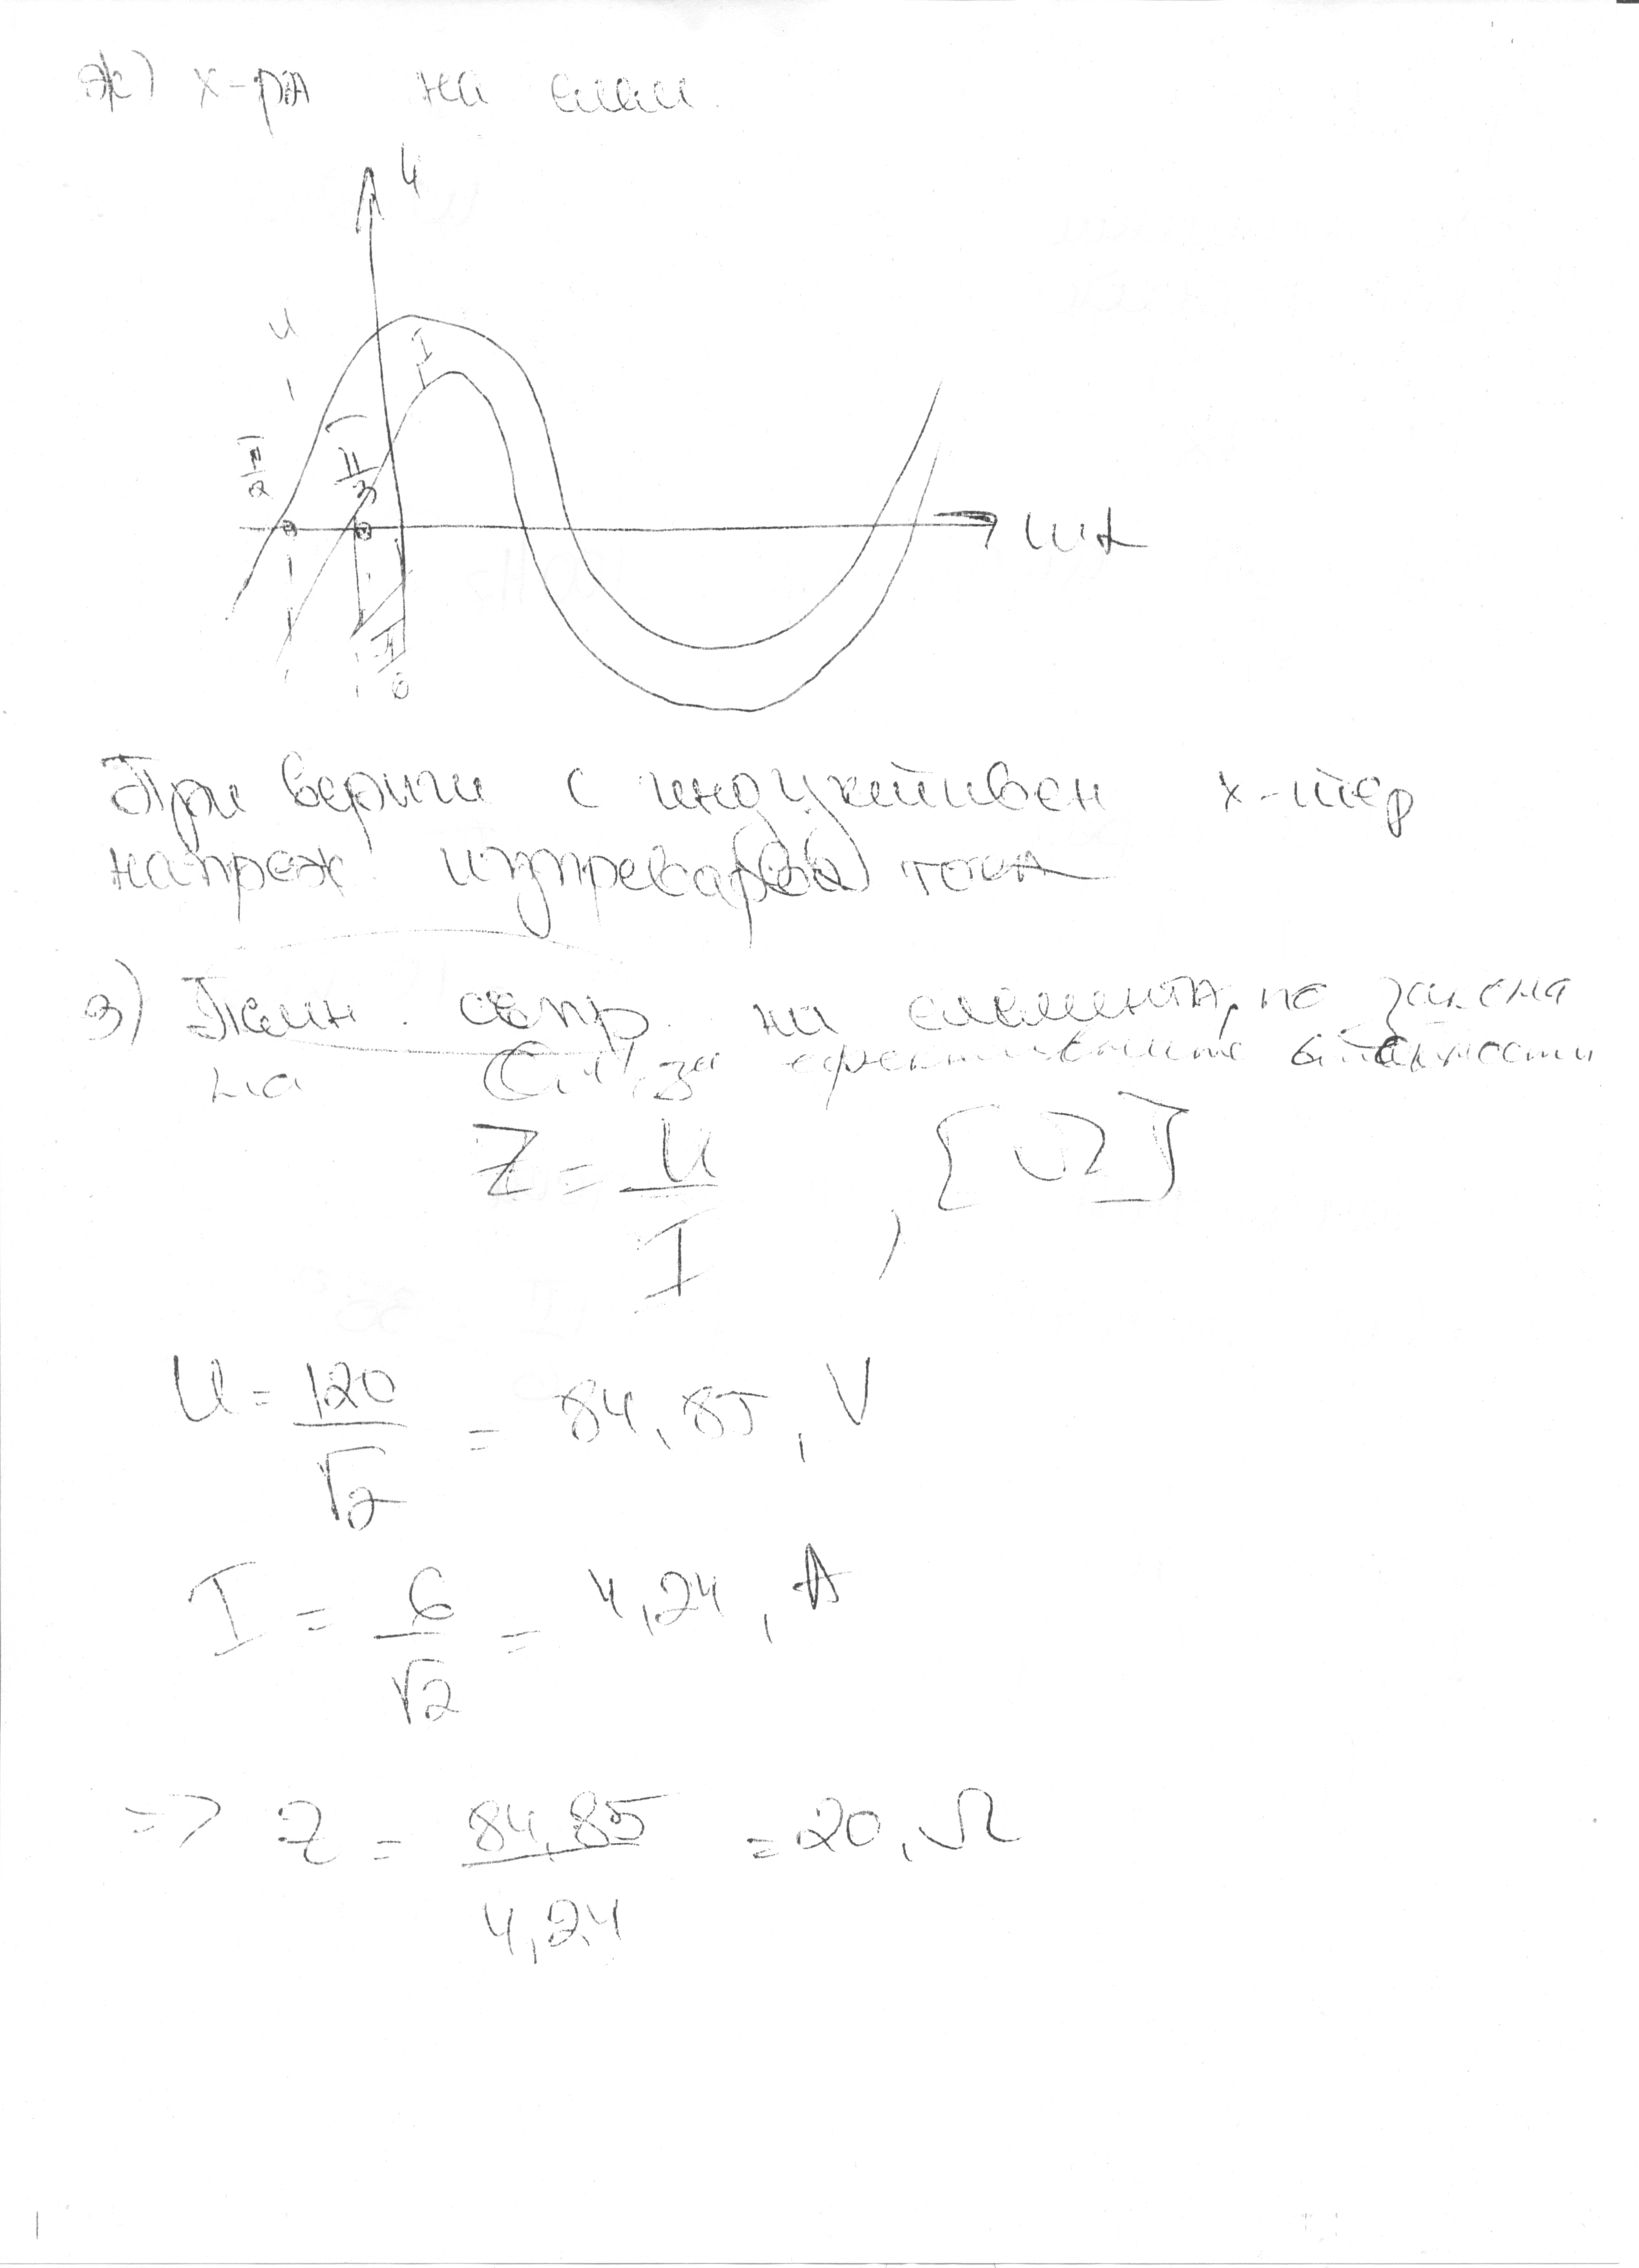 ж) х-ра на елем.
u
u
I
π/2
π/3
ωt
π/6
При вериги с индуктивен х-тер
напреж. изпреварва тока
з) Пълн. съпр. на елемента, по закона
на Ом за ефективните стойности
Z = U/I , [Ω]
U = 120/√2 = 84,85, V
I = 6/√2 = 4,24, A
=> Z = 84,85/4,24 = 20, Ω